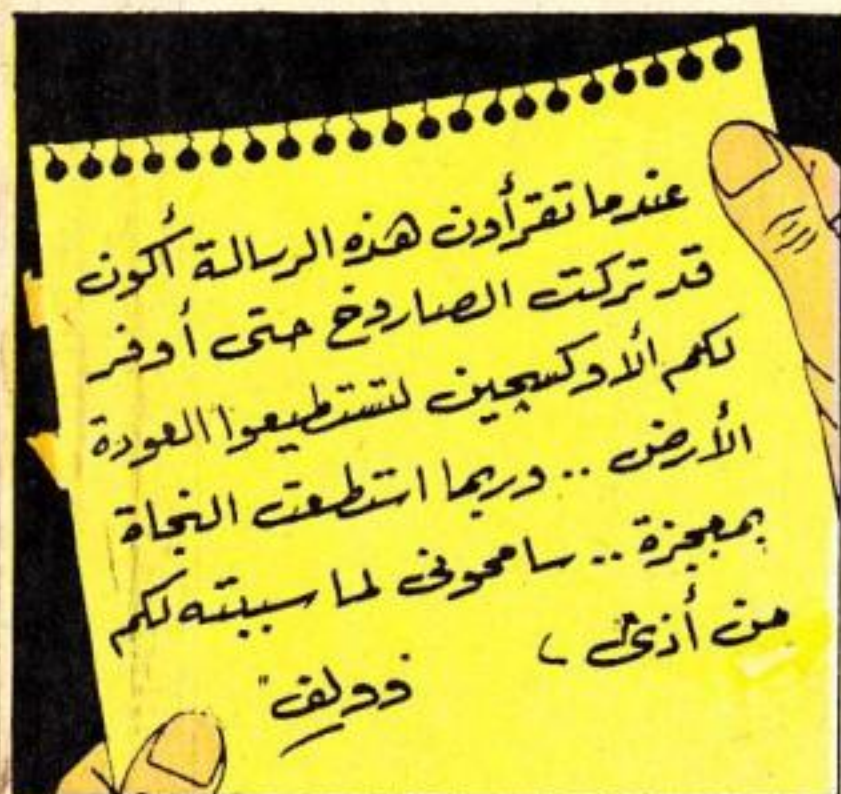 عندما تقرأون هذه الرسالة أكون
قد تركت الصاروخ حتى أوفر
لكم ألاوكسجين لتستطيعوا العودة
الأرض .. وربما استطعت النجاة
بمعجزة .. سامحونى لما سببته لكم
من أذى ،   ڤوولف"